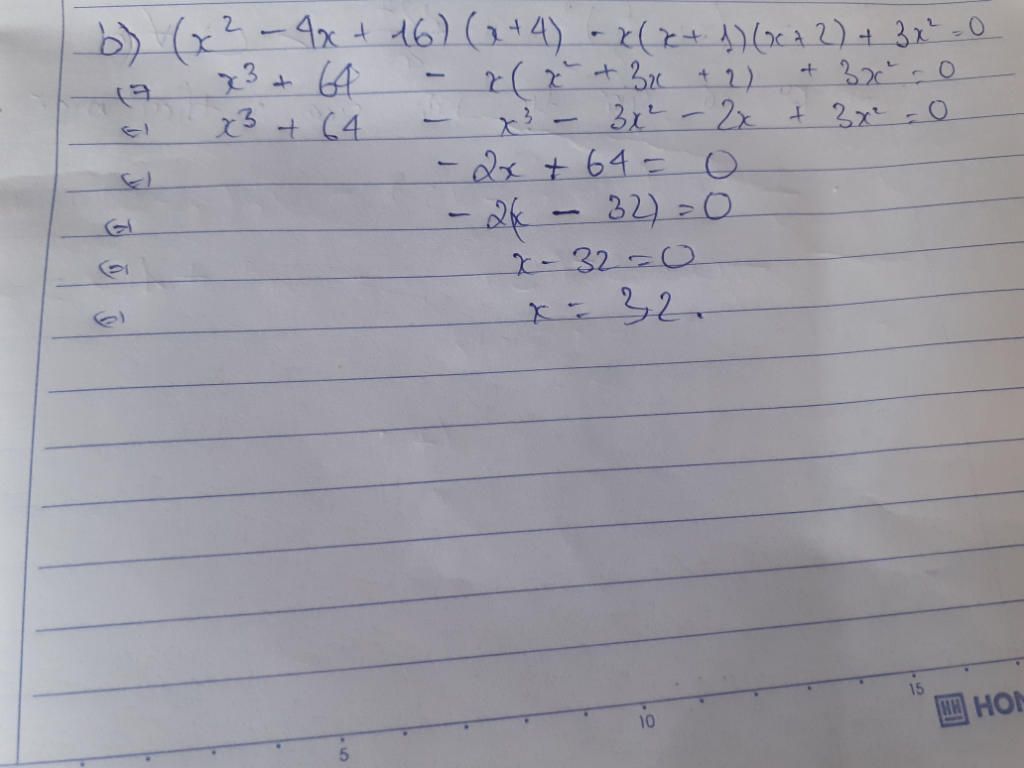 b) (x² - 4x + 16)(x+4) - x(x+1)(x+2) + 3x² = 0
(=) x³ + 64 - x(x² + 3x + 2) + 3x² = 0
(=) x³ + 64 - x³ - 3x² - 2x + 3x² = 0
(=) - 2x + 64 = 0
(=) - 2(x - 32) = 0
(=) x - 32 = 0
(=) x = 32.
5 10 15
HH